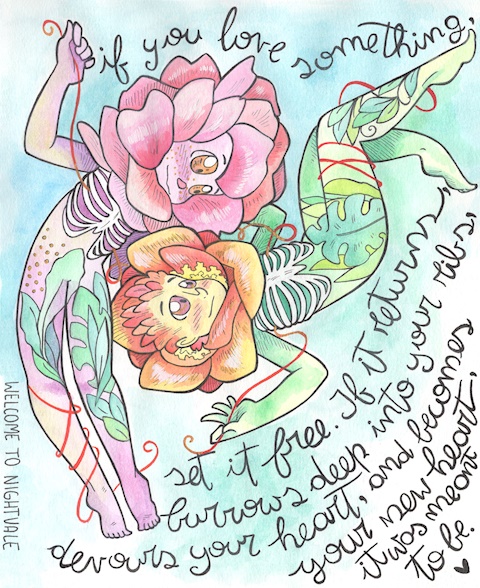 if you love something,
set it free. If it returns,
burrows deep into your ribs,
devours your heart, and becomes
your new heart,
it was meant
to be.
WELCOME TO NIGHTVALE